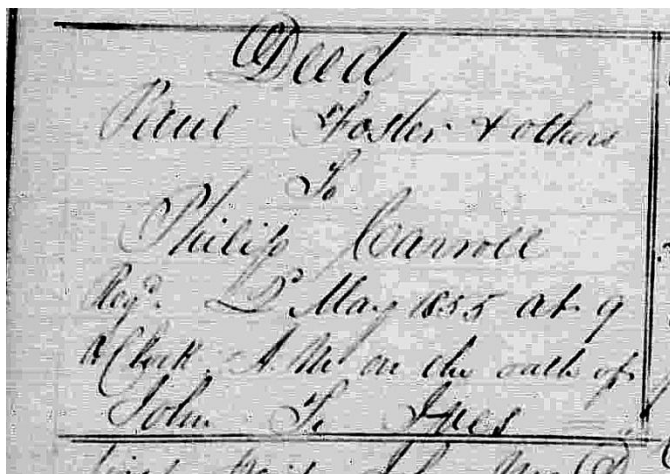 Deed
Paul Foster & others
To
Philip Carroll
Regd. May 1855 at 9
O Clock A.M. on the oath of
John T. Ives